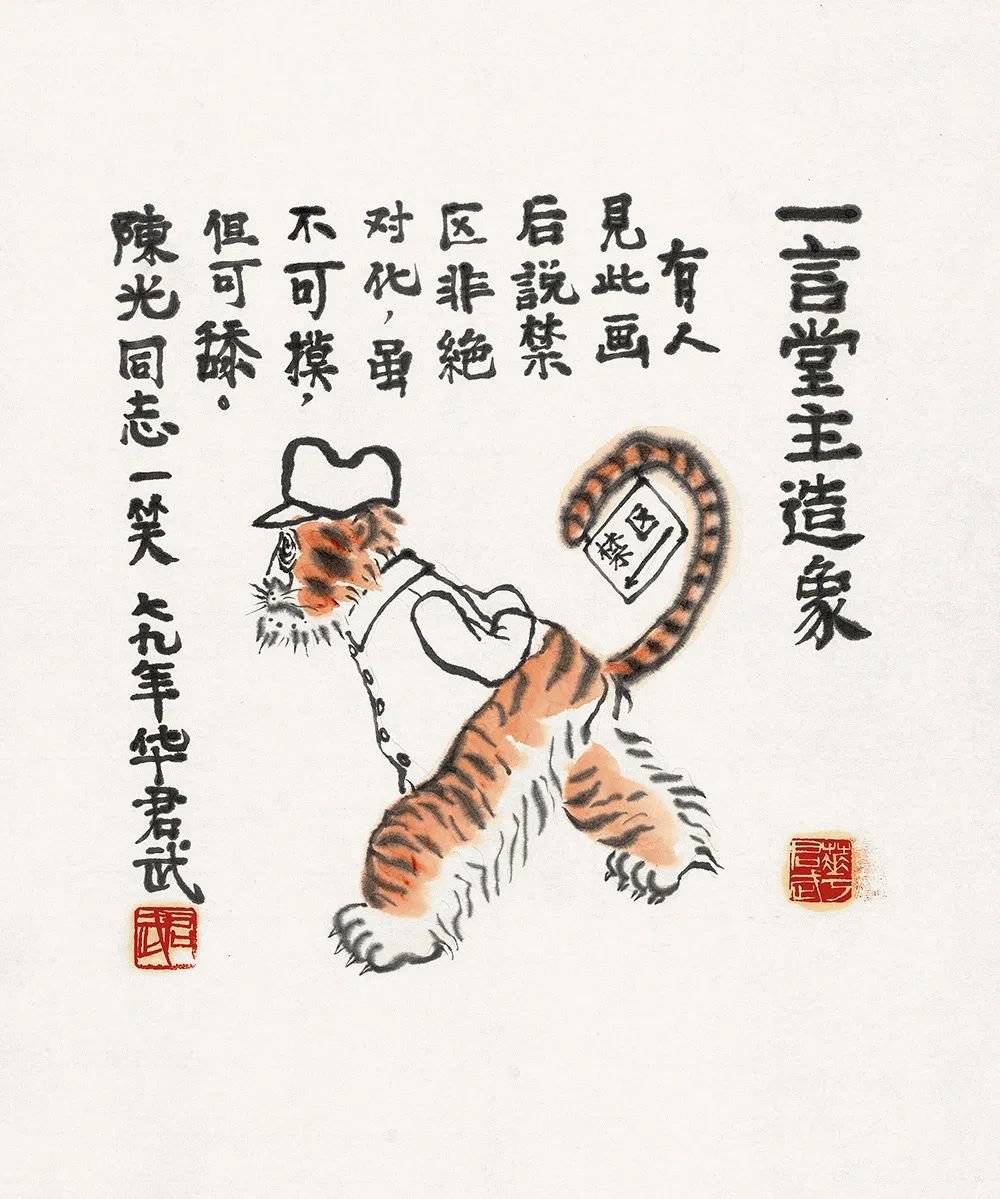 一言堂主造象
有人
見此画
后説禁
区非絶
对化，虽
不可摸，
但可舔。
陳光同志一笑 七九年华君武
禁区
君武
華君武